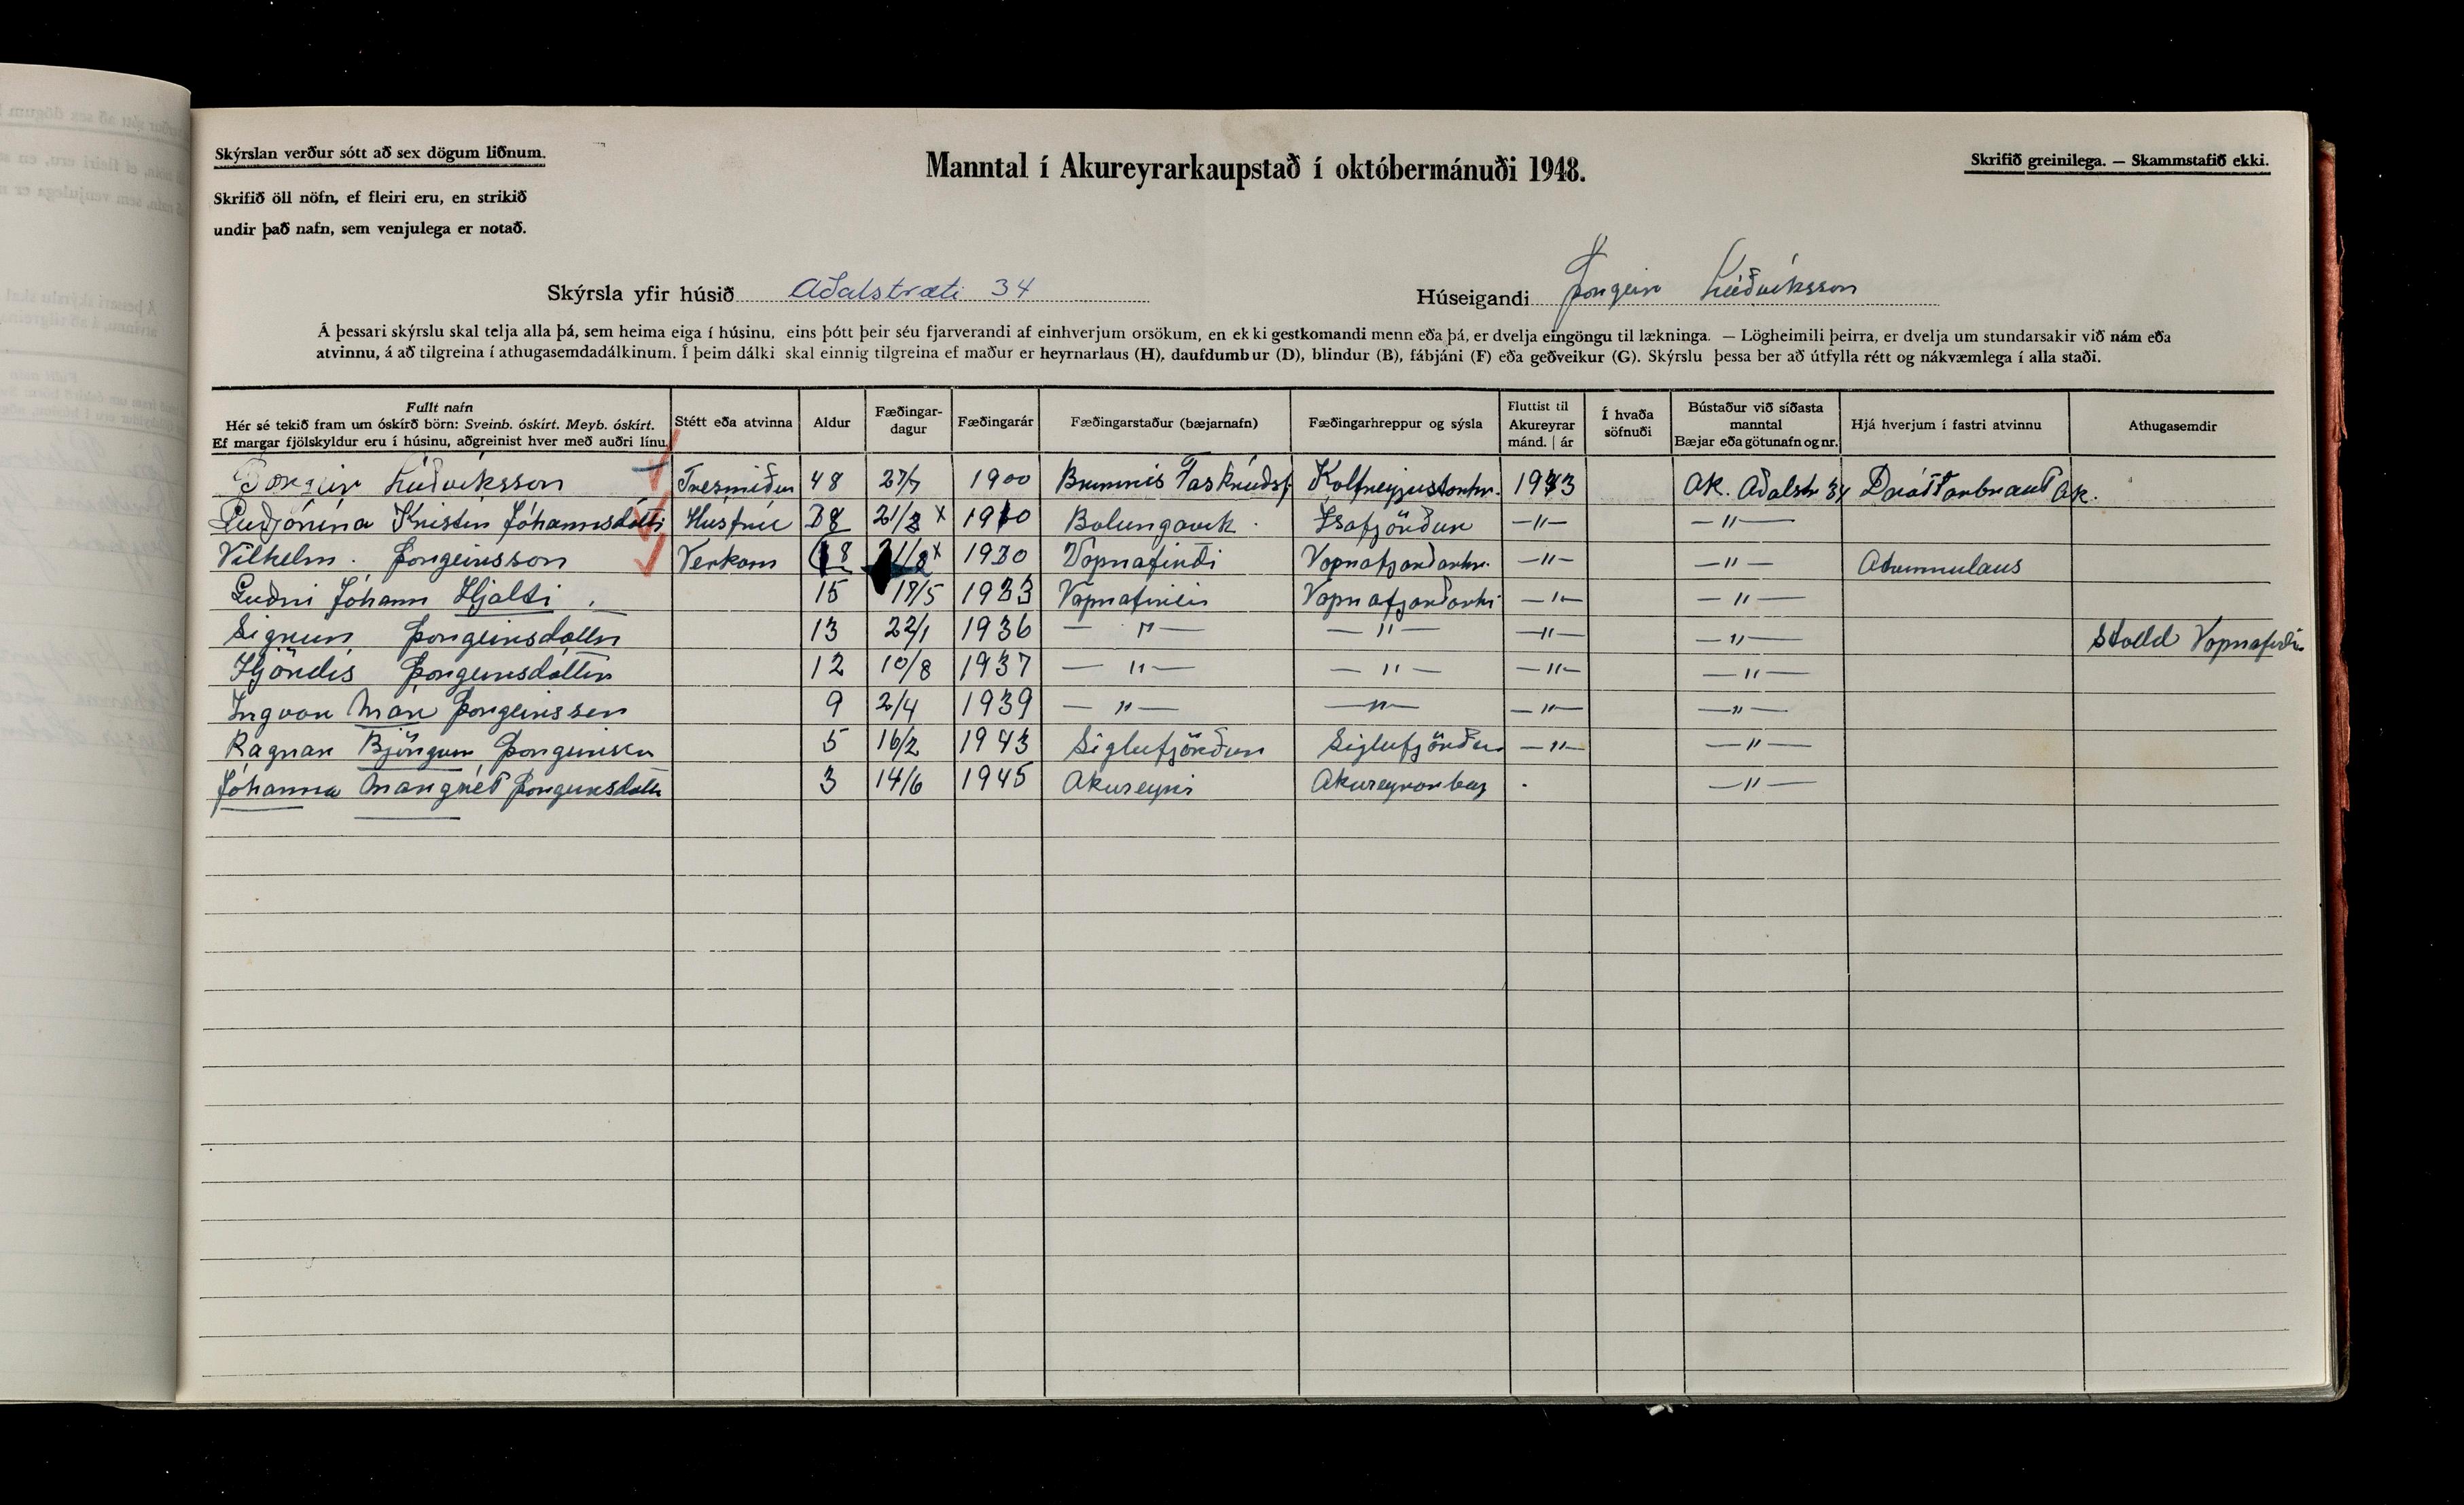 Skýrslan verður sótt að sex dögum liðnum.
Manntal í Akureyrarkaupstað í októbermánuði 1948.
Skrifið greinilega. — Skammstafið ekki.
Skrifið öll nöfn, ef fleiri eru, en strikið
undir það nafn, sem venjulega er notað.
Skýrsla yfir húsið Aðalstræti 34
Húseigandi Þorgeir Lúðvíksson
Á þessari skýrslu skal telja alla þá, sem heima eiga í húsinu, eins þótt þeir séu fjarverandi af einhverjum orsökum, en ekki gestkomandi menn eða þá, er dvelja eingöngu til lækninga. — Lögheimili þeirra, er dvelja um stundarsakir við nám eða
atvinnu, á að tilgreina í athugasemdadálkinum. Í þeim dálki skal einnig tilgreina ef maður er heyrnarlaus (H), daufdumbur (D), blindur (B), fábjáni (F) eða geðveikur (G). Skýrslu þessa ber að útfylla rétt og nákvæmlega í alla staði.
Fullt nafn
Hér sé tekið fram um óskírð börn: Sveinb. óskírt. Meyb. óskírt.
Ef margar fjölskyldur eru í húsinu, aðgreinist hver með auðri línu.
Stétt eða atvinna
Aldur
Fæðingar-
dagur
Fæðingarár
Fæðingarstaður (bæjarnafn)
Fæðingarhreppur og sýsla
Fluttist til
Akureyrar
mánd. | ár
Í hvaða
söfnuði
Bústaður við síðasta
manntal
Bæjar eða götunafn og nr.
Hjá hverjum í fastri atvinnu
Athugasemdir
Þorgeir Lúðvíksson Tresmiður 48 27/7 1900 Brimnis Faskrúðsf. Kolfreyjustarhr. 1943 Ak. Aðalstr 34 Dráttarbraut Ak.
Guðjónína Kristín Jóhannsdótti Húsfrú 38 21/8 x 1910 Bolungavík Ísafjörður —"— —"—
Vilhelm Þorgeirsson Verkam 18 1/8 x 1930 Vopnafirði Vopnafjarðarhr. —"— —"— Atvinnulaus
Guðni Jóhann Hjalti 15 17/5 1933 Vopnafirði Vopnafjarðarhr —"— —"—
Sigrún Þorgeirsdóttir 13 22/1 1936 —"— —"— —"— —"— Stödd Vopnafirði
Hjördís Þorgeirsdóttir 12 10/8 1937 —"— —"— —"— —"—
Ingvar Már Þorgeirsson 9 2/4 1939 —"— —"— —"— —"—
Ragnar Björgvin Þorgeirsson 5 16/2 1943 Siglufjörður Siglufjörður —"— —"—
Jóhanna Margrét Þorgeirsdóttir 3 14/6 1945 Akureyri Akureyrarbær —"—